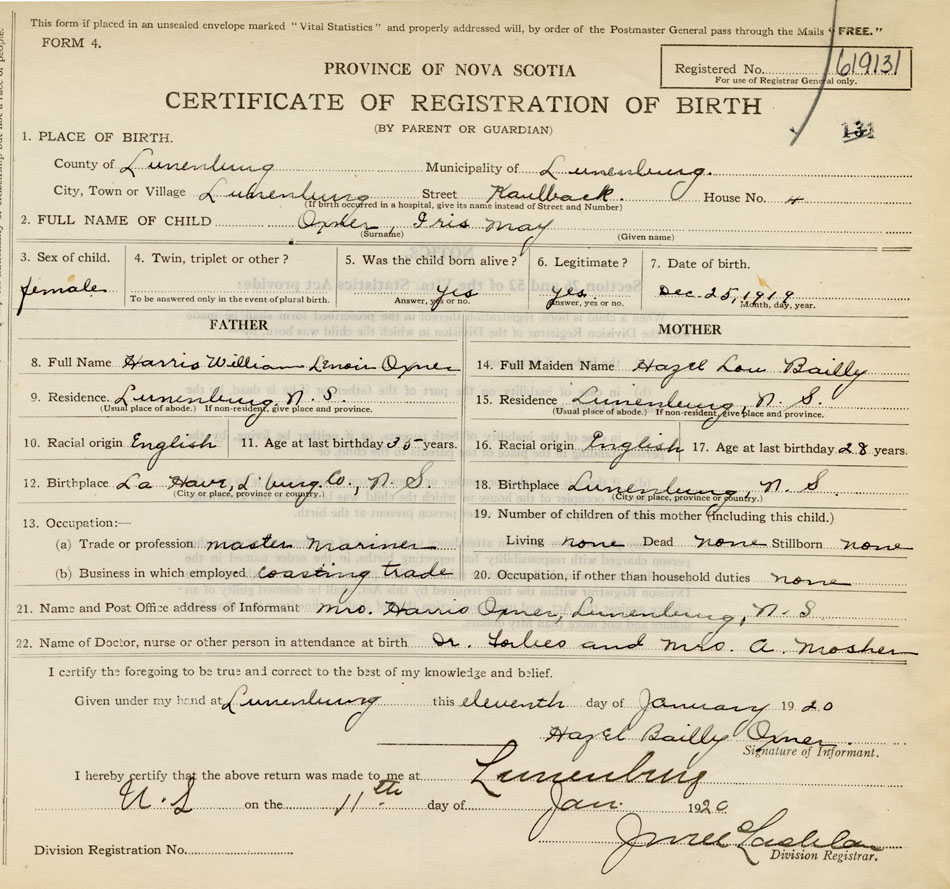 This form if placed in an unsealed envelope marked "Vital Statistics" and properly addressed will, by order of the Postmaster General pass through the Mails "FREE."
FORM 4.
Registered No. 619131
For use of Registrar General only.
PROVINCE OF NOVA SCOTIA
CERTIFICATE OF REGISTRATION OF BIRTH
(BY PARENT OR GUARDIAN)
131
1. PLACE OF BIRTH.
County of Lunenburg Municipality of Lunenburg.
City, Town or Village Lunenburg Street Kaulback. House No. 4
(If birth occurred in a hospital, give its name instead of Street and Number)
2. FULL NAME OF CHILD Oxner, Iris May
(Surname) (Given name)
3. Sex of child. 4. Twin, triplet or other? 5. Was the child born alive? 6. Legitimate? 7. Date of birth.
female yes yes. Dec. 25, 1919
To be answered only in the event of plural birth. Answer, yes or no. Answer, yes or no. Month, day, year.
FATHER MOTHER
8. Full Name Harris William Lenoir Oxner 14. Full Maiden Name Hazel Lou Bailly
9. Residence. Lunenburg, N. S. 15. Residence Lunenburg, N. S.
(Usual place of abode.) If non-resident, give place and province. (Usual place of abode.) If non-resident, give place and province.
10. Racial origin English 11. Age at last birthday 35 years. 16. Racial origin English 17. Age at last birthday 28 years.
12. Birthplace La Have, L'burg. Co., N. S. 18. Birthplace Lunenburg, N. S.
(City or place, province or country.) (City or place, province or country.)
13. Occupation:— 19. Number of children of this mother (including this child.)
(a) Trade or profession master mariner Living none Dead none Stillborn none
(b) Business in which employed coasting trade 20. Occupation, if other than household duties none
21. Name and Post Office address of Informant Mrs. Harris Oxner, Lunenburg, N. S
22. Name of Doctor, nurse or other person in attendance at birth Dr. and Mrs. A. Mosher
I certify the foregoing to be true and correct to the best of my knowledge and belief.
Given under my hand at Lunenburg this eleventh day of January 1920
Hazel Bailly Oxner.
Signature of Informant.
I hereby certify that the above return was made to me at Lunenburg
N. S on the 11th day of Jan. 1920
Division Registrar.
Division Registration No.